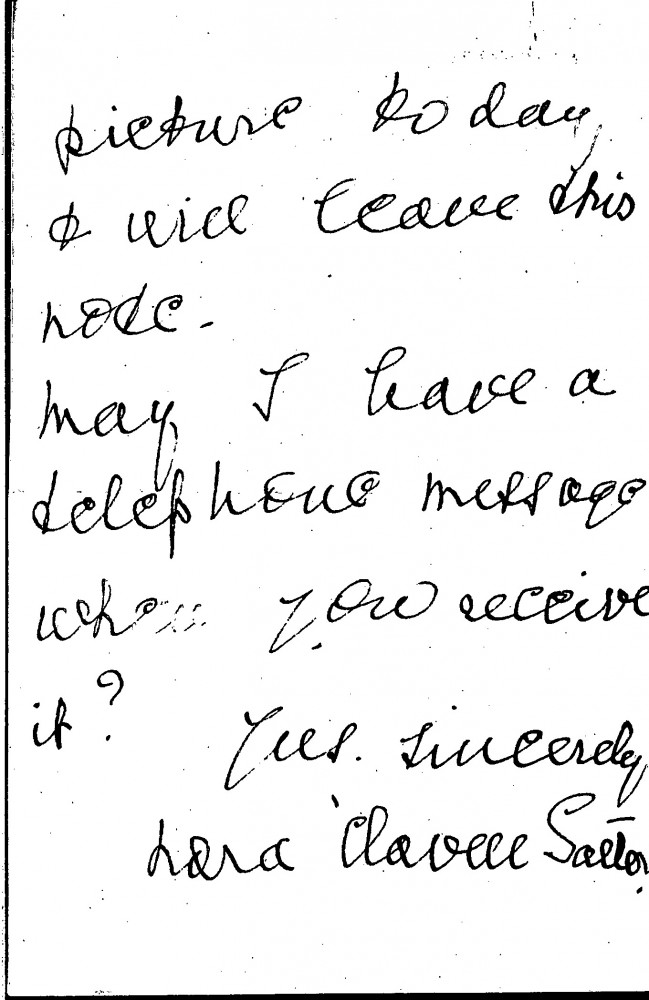 picture to day,
& will leave this
note.
May I have a
telephone message
when you receive
it?
Yrs. sincerely